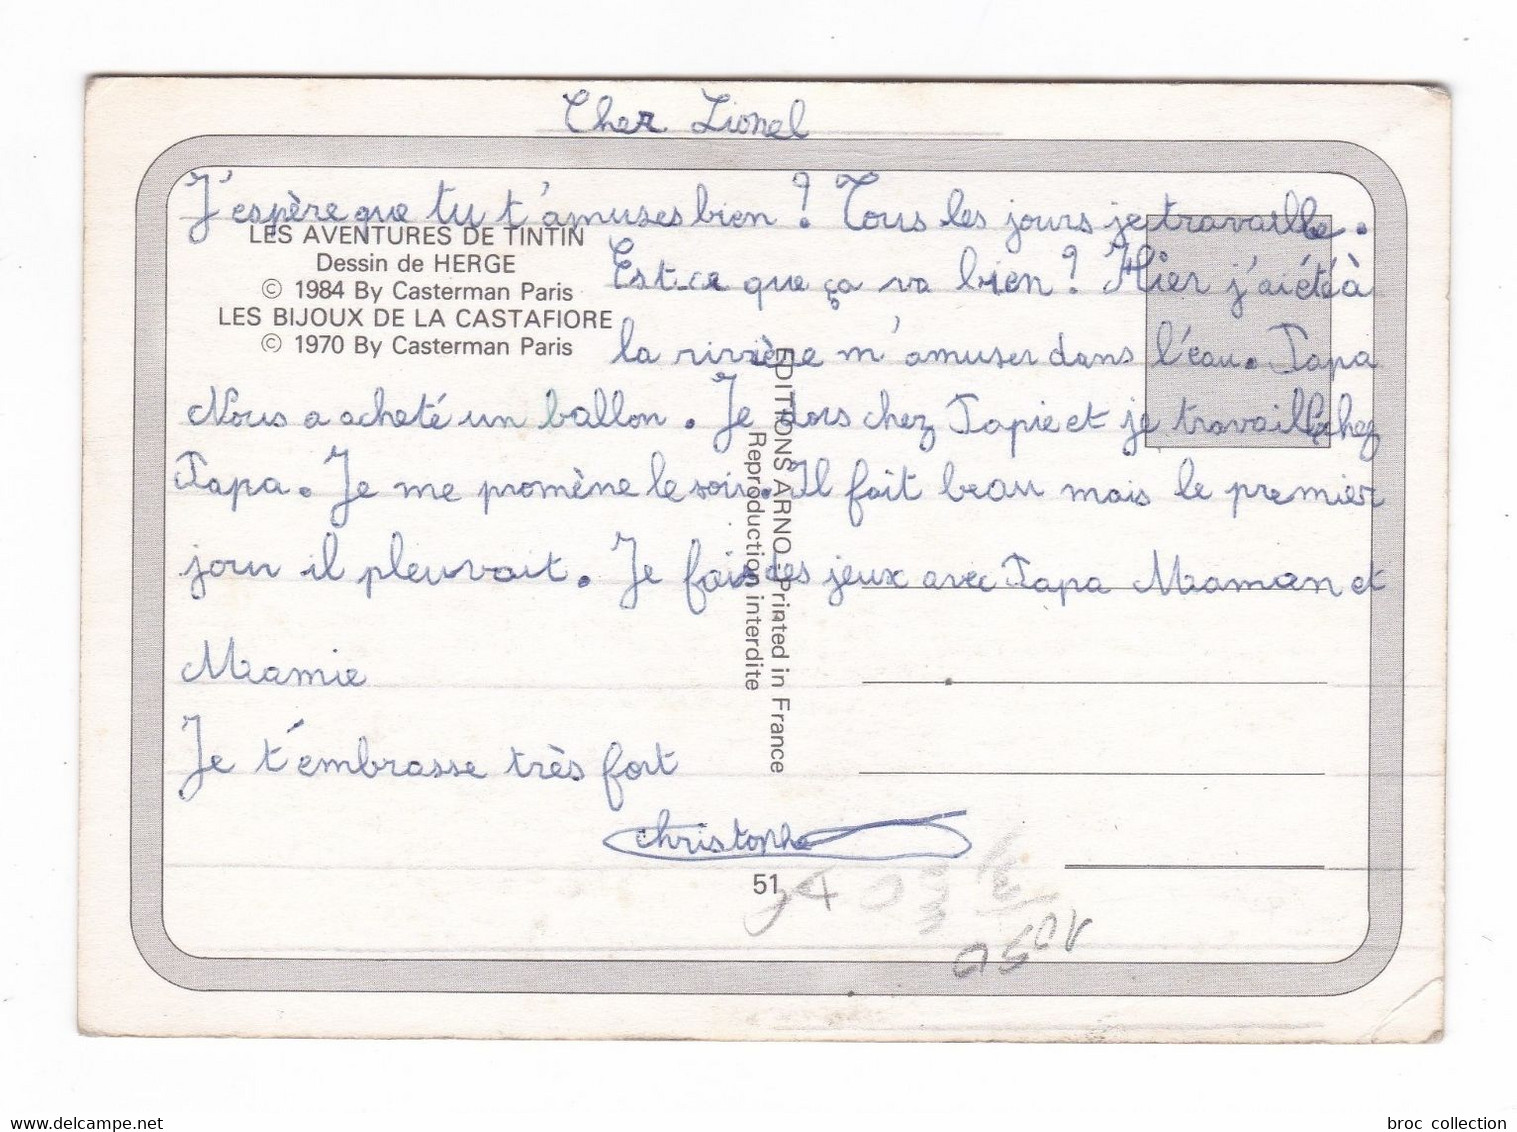 Cher Lionel
J'espère que tu t'amuses bien ? Tous les jours je travaille.
LES AVENTURES DE TINTIN
Dessin de HERGE
© 1984 By Casterman Paris
LES BIJOUX DE LA CASTAFIORE
© 1970 By Casterman Paris
Est-ce que ça va bien ? Hier j'ai été à
la rivière m'amuser dans l'eau. Papa
Nous a acheté un ballon. Je dors chez Papie et je travaille chez
Papa. Je me promène le soir. Il fait beau mais le premier
jour il pleuvait. Je fais des jeux avec Papa Maman et
Mamie
Je t'embrasse très fort
christophe
EDITIONS ARNO - Printed in France
Reproduction interdite
51
www.delcampe.net
broc collection